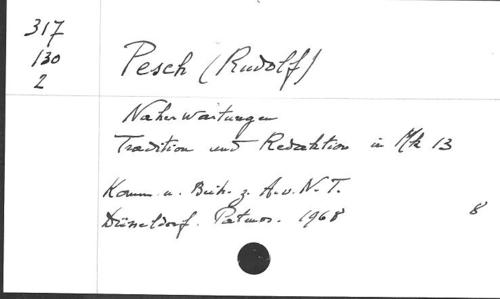 317
130
2
Pesch (Rudolf)
Naherwartungen
Tradition und Redaktion in Mk 13
Komm. u. Beih. z. A. u. N. T.
Düsseldorf. Patmos. 1968
8